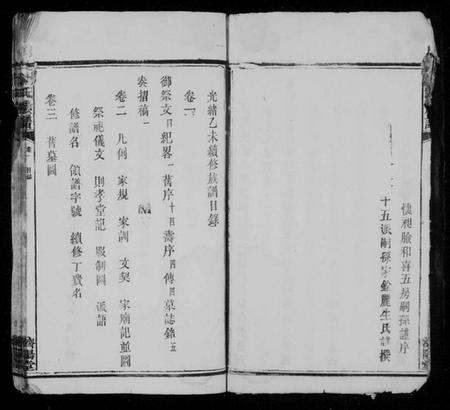 懷昶臉和喜五房嗣孫謹序
十五派嗣孫家銓麗生氏謹撰
光緒乙未續修族譜目錄
卷一
御祭文 紀畧一 舊序十四 壽序四 傳四 墓誌銘五
奏招稿一
卷二 凡例 家規 家訓 文契 家廟記並圖
祭祀儀文 則孝堂記 服制圖 派語
修譜名 領譜字號 續修丁費名
卷三 舊墓圖
濟陽堂
濟陽堂